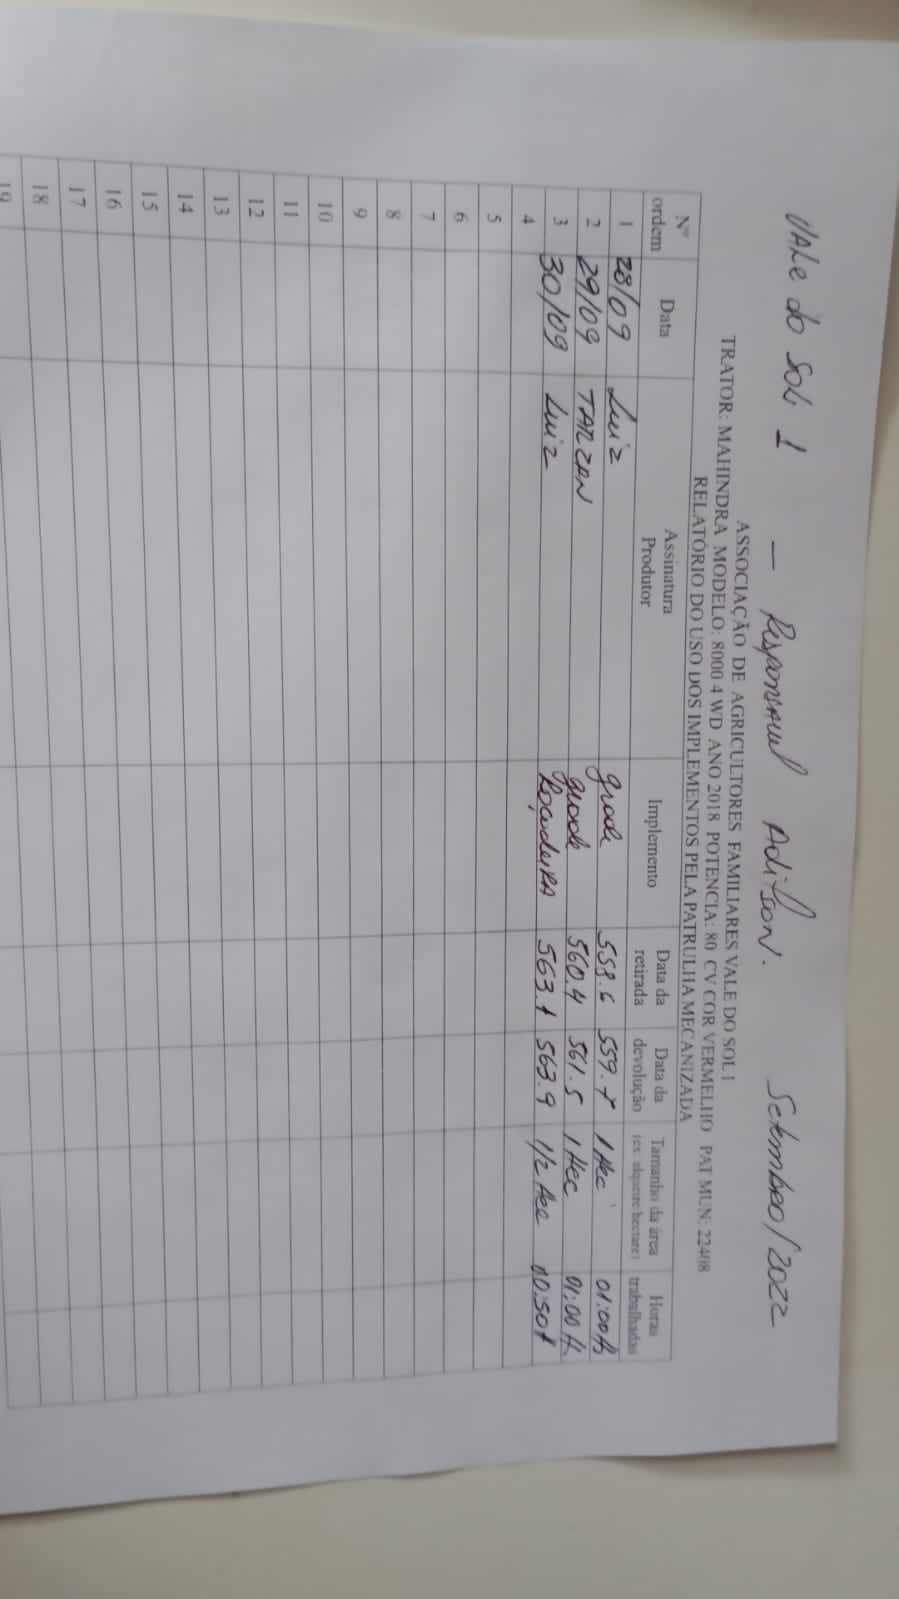 VALe do SOL 1 — Responsavel Adilson. Setembro/2022
ASSOCIAÇÃO DE AGRICULTORES FAMILIARES VALE DO SOL I
TRATOR: MAHINDRA MODELO: 8000 4 WD ANO 2018 POTENCIA: 80 CV COR VERMELHO PAT MUN: 22408
RELATÓRIO DO USO DOS IMPLEMENTOS PELA PATRULHA MECANIZADA
Nº ordem Data Assinatura Produtor Implemento Data da retirada Data da devolução Tamanho da área (ex. alqueire/hectare) Horas trabalhadas
1 28/09 Luiz grade 558.6 559.7 1 Hec 01:00h
2 29/09 TARZAN grade 560.4 561.5 1 Hec 01:00h.
3 30/09 Luiz RoçadeiRA 563.1 563.9 1/2 Hec 00:50h
4
5
6
7
8
9
10
11
12
13
14
15
16
17
18
19